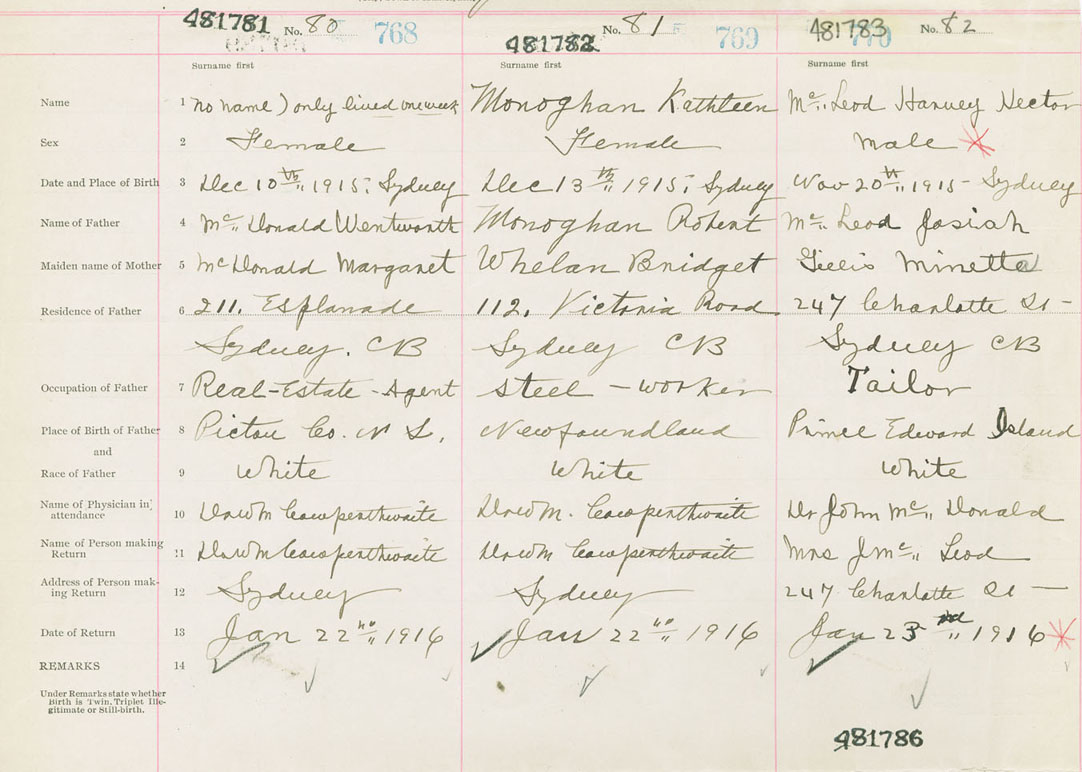 481781 No. 80 768 481782 No. 81 769 481783 No. 82 770
Surname first Surname first Surname first
Name 1 no name) only lived one week Monoghan Kathleen Mc. Leod Harvey Hector
Sex 2 Female Female Male
Date and Place of Birth 3 Dec 10th, 1915; Sydney Dec 13th, 1915; Sydney Nov 20th, 1915 - Sydney
Name of Father 4 Mc Donald Wentworth Monoghan Robert Mc. Leod Josiah
Maiden name of Mother 5 Mc Donald Margaret Whelan Bridget Gillis Minetta
Residence of Father 6 211. Esplanade 112. Victoria Road 247 Charlotte St -
Sydney. CB Sydney CB Sydney CB
Occupation of Father 7 Real-Estate-Agent Steel - worker Tailor
Place of Birth of Father 8 Pictou Co. N S, Newfoundland Prince Edward Island
and
Race of Father 9 White White White
Name of Physician in attendance 10 Dr Wm Cowperthwaite Dr Wm. Cowperthwaite Dr John Mc Donald
Name of Person making Return 11 Dr Wm Cowperthwaite Dr Wm Cowperthwaite Mrs J Mc Leod
Address of Person making Return 12 Sydney Sydney 247 Charlotte St -
Date of Return 13 Jan 22nd 1916 Jan 22nd 1916 Jan 23rd 1916
REMARKS 14
Under Remarks state whether
Birth is Twin, Triplet Ille-
gitimate or Still-birth.
481786